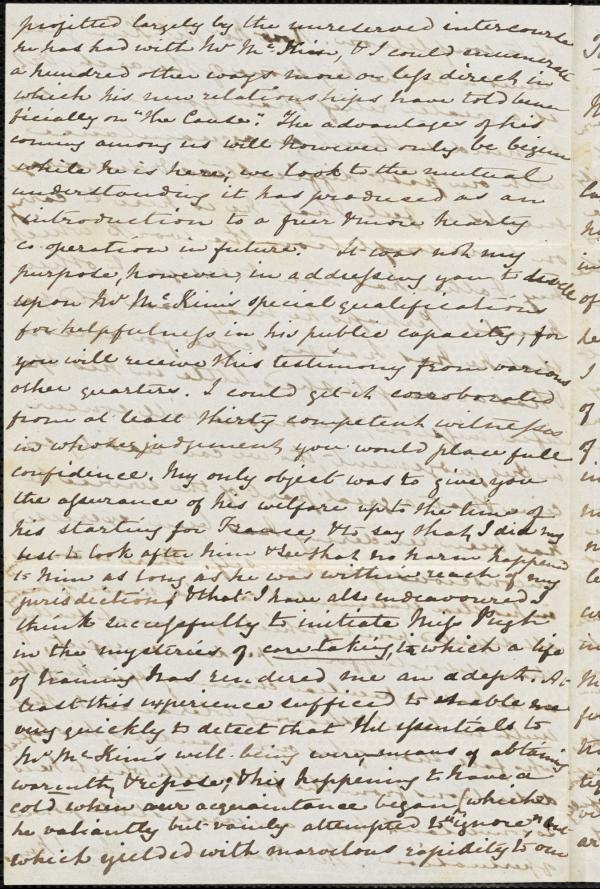 profitted largely by the unreserved intercourse
he has had with Mr McKim, & I could enumerate
a hundred other ways more or less direct, in
which his new relationships have told bene-
ficially on "the Cause". The advantages of his
coming among us will however only be begun
while he is here; we look to the mutual
understanding it has produced as an
introduction to a freer & more hearty
co operation in future. It was not my
purpose, however, in addressing you to dwell
upon Mr McKim's special qualifications
for helpfulness in his public capacity, for
you will receive this testimony from various
other quarters. I could get it corroborated
from at least thirty competent witnesses
in whose judgement you would place full
confidence. My only object was to give you
the assurance of his welfare up to the time of
his starting for France, & to say that I did my
best to look after him & see that no harm happened
to him as long as he was within reach of my
jurisdiction; & that I have also endeavoured I
think successfully to initiate Miss Pugh
in the mysteries of care taking, in which a life
of training has rendered me an adept. At
least this experience sufficed to enable me
very quickly to detect that the essentials to
Mr McKim's well being were, means of obtaining
warmth, & repose; & his happening to have a
cold when our acquaintance began (which
he valiantly but vainly attempted to "ignore") but
which yielded with marvelous rapidity to our